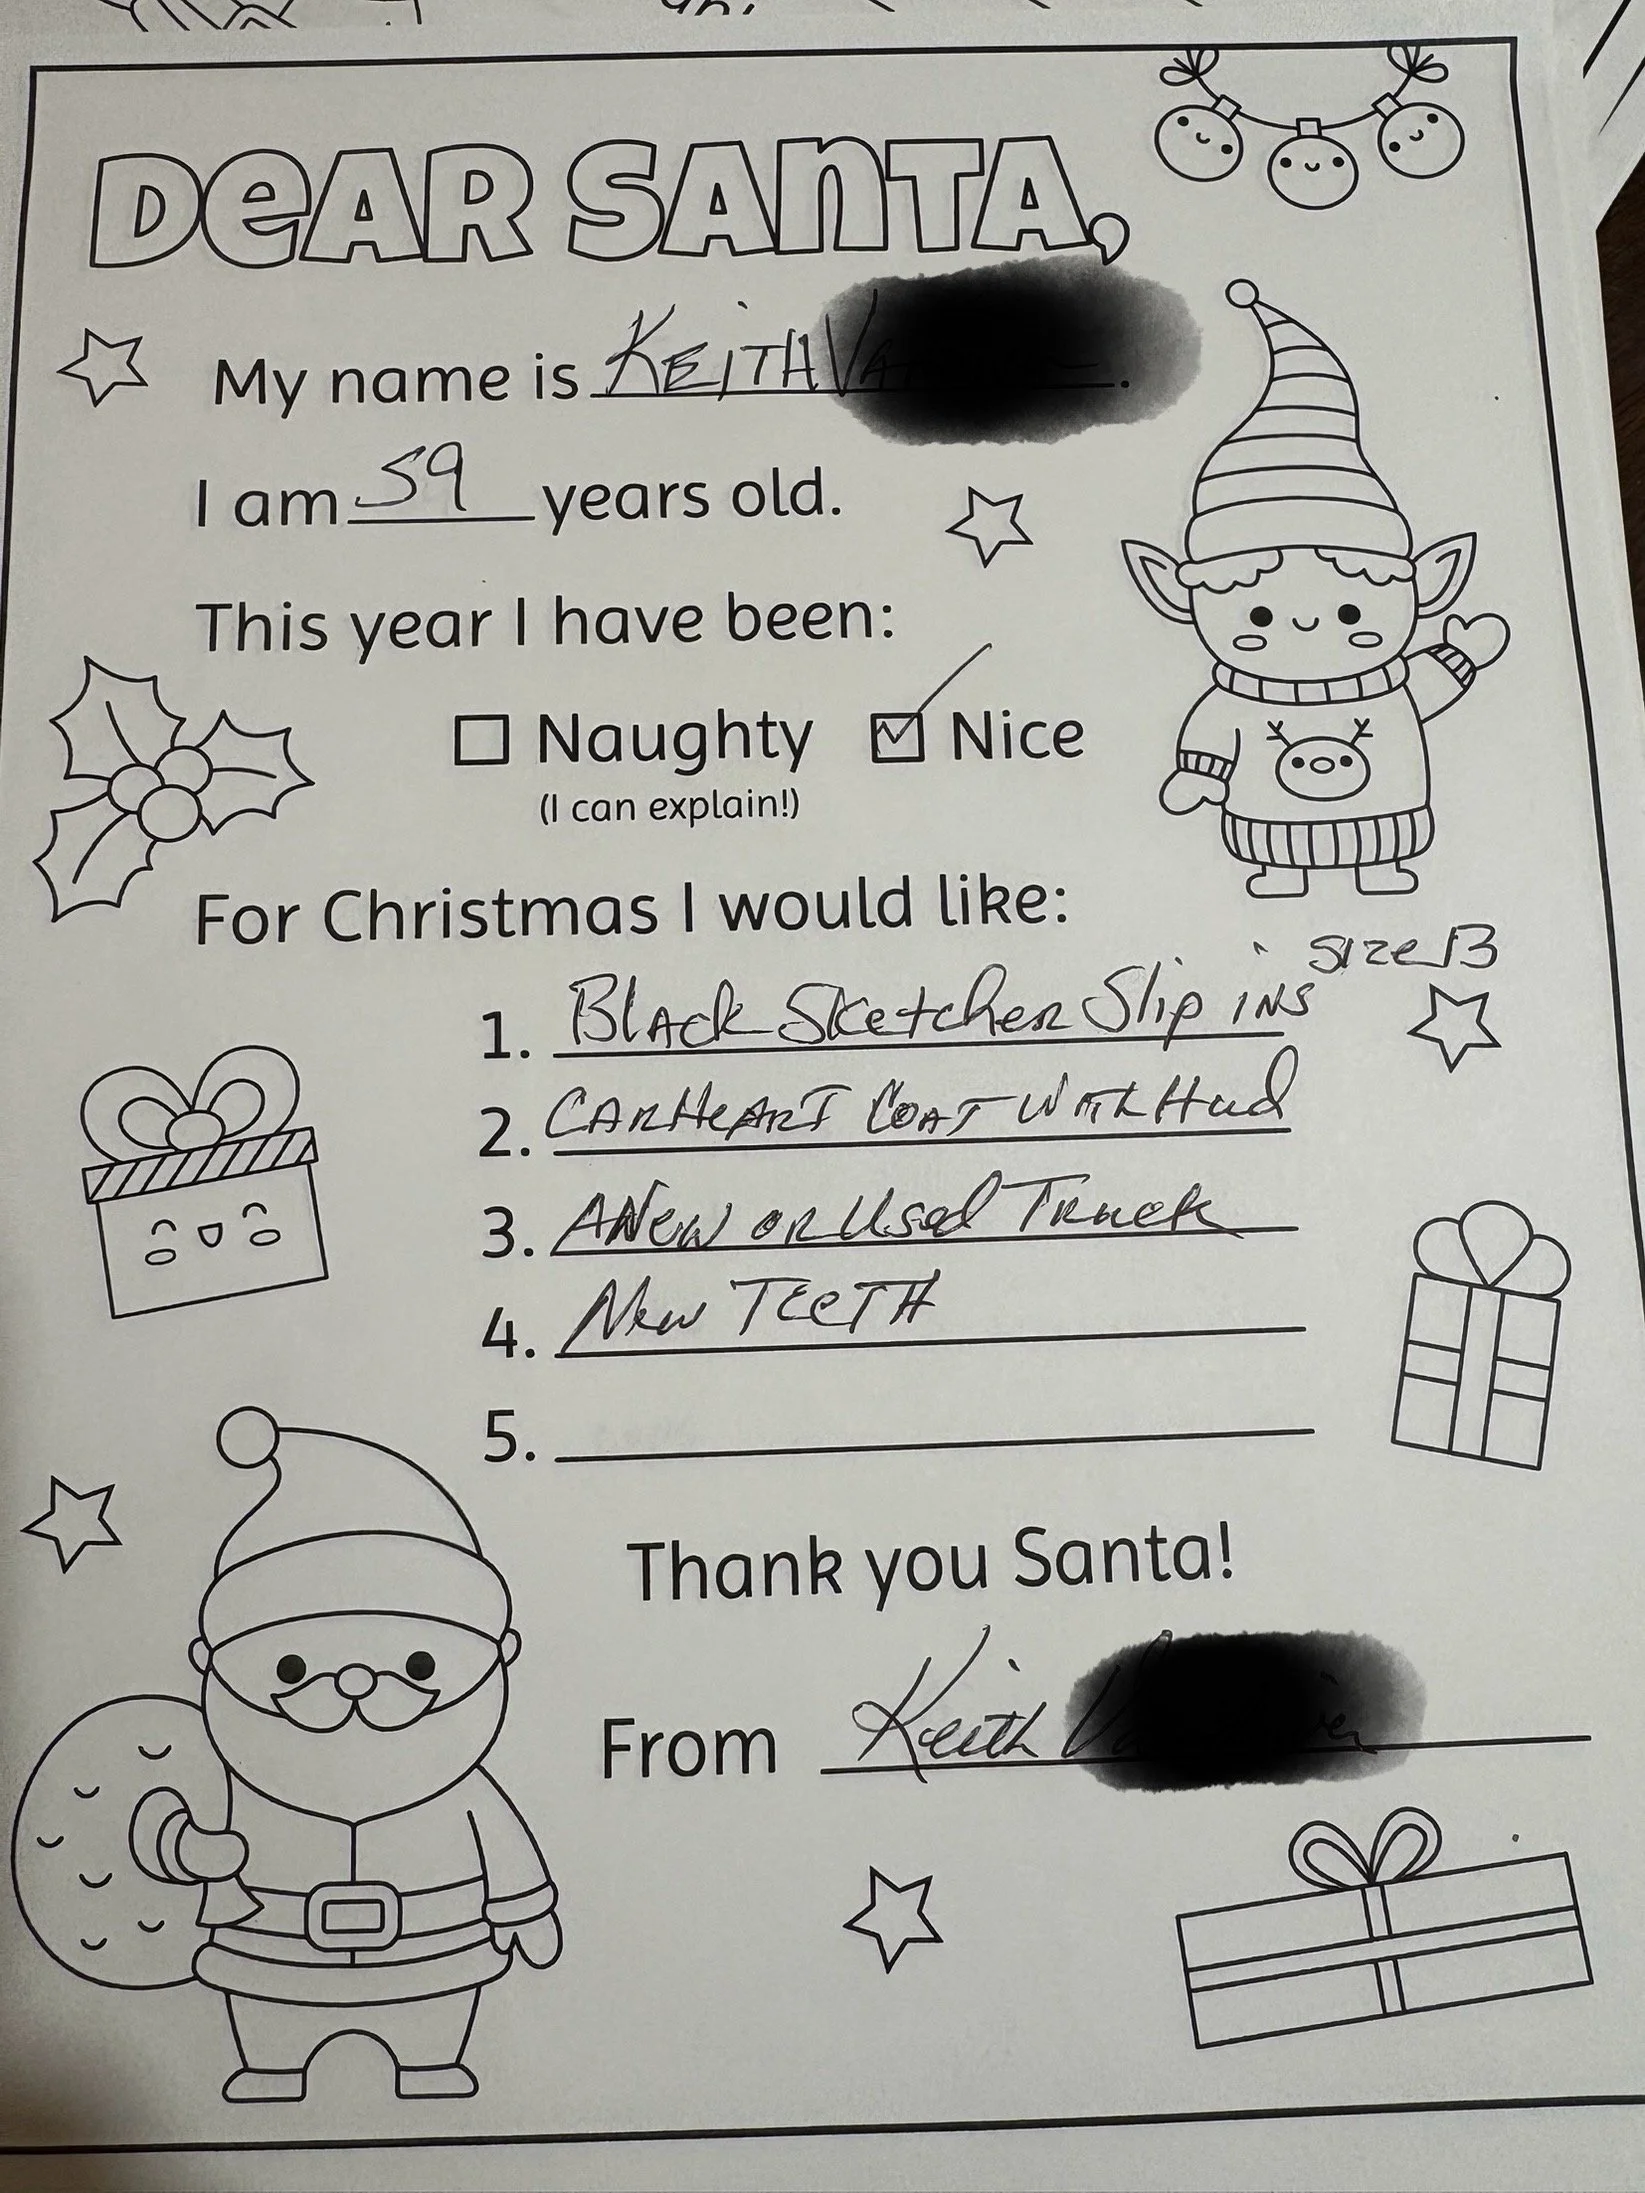 DEAR SANTA,
My name is KEITH
I am 59 years old.
This year I have been:
Naughty Nice
(I can explain!)
For Christmas I would like:
size 13
1. Black Sketcher Slip INS
2. CARHEART COAT WITH Hud
3. A New or Used Truck
4. New TeeTH
5.
Thank you Santa!
From Keith